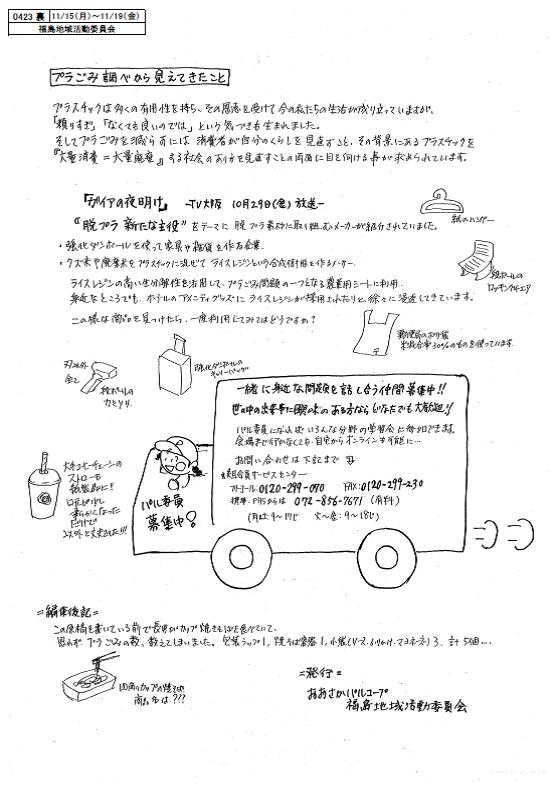 0423 裏 11/15(月)～11/19(金)
福島地域活動委員会
プラごみ調べから見えてきたこと
プラスチックは多くの有用性を持ち、その恩恵を受けて今の私たちの生活が成り立っていますが、
「頼りすぎ」「なくても良いのでは」という気づきも生まれました。
そしてプラごみを減らすには、消費者が自分のくらしを見直すこと、その背景にあるプラスチックを
『大量消費=大量廃棄』する社会のあり方を見直すことの両面に目を向ける事が求められています。
「ガイアの夜明け」 -TV大阪 10月29日(金)放送-
"脱プラ 新たな主役"をテーマに脱プラ素材に取り組むメーカーが紹介されていました。
・強化ダンボールを使って家具や雑貨を作る企業。
・クズ米や廃棄米をプラスチックに混ぜてライスレジンという合成樹脂を作るメーカー
ライスレジンの高い生分解性を活用して、プラごみ問題の一つとなる農業用シートに利用。
身近なところでも、ホテルのアメニティグッズにライスレジンが採用されたりと徐々に浸透してきています。
この様な商品を見つけたら、一度利用してみてはどうですか?
紙のハンガー
段ボールの
ロッキングチェア
郵便局のお子様
米配合率30%のものを使っています。
強化ダンボールの
キャリーバッグ
刃以外
全て
段ボールの
カミソリ
大手コーヒーチェーンの
ストローも
紙製品に!
一緒に身近な問題を話し合う仲間募集中!!
世の中の出来事に興味のある方ならどなたでも大歓迎!!
パル委員になればいろんな分野の学習会に参加できます。
会場まで行かなくても、自宅からオンラインも可能に…
お問い合わせは下記まで
組合員サービスセンター
フリーコール 0120-299-070 FAX:0120-299-230
携帯・PHSからは 072-856-7671 (有料)
(月曜:9～17時 火～金:9～18時)
パル委員
募集中!
=編集後記=
この原稿を書いている前で長男がカップ焼きそばを食べていて、
思わずプラごみの数、数えてしまいました。包装ラップ1、焼そば容器1、小袋(ソース、ふりかけ、マヨネーズ)3、計5個…
四角いカップの焼そば
商品名は???
=発行=
おおさかパルコープ
福島地域活動委員会